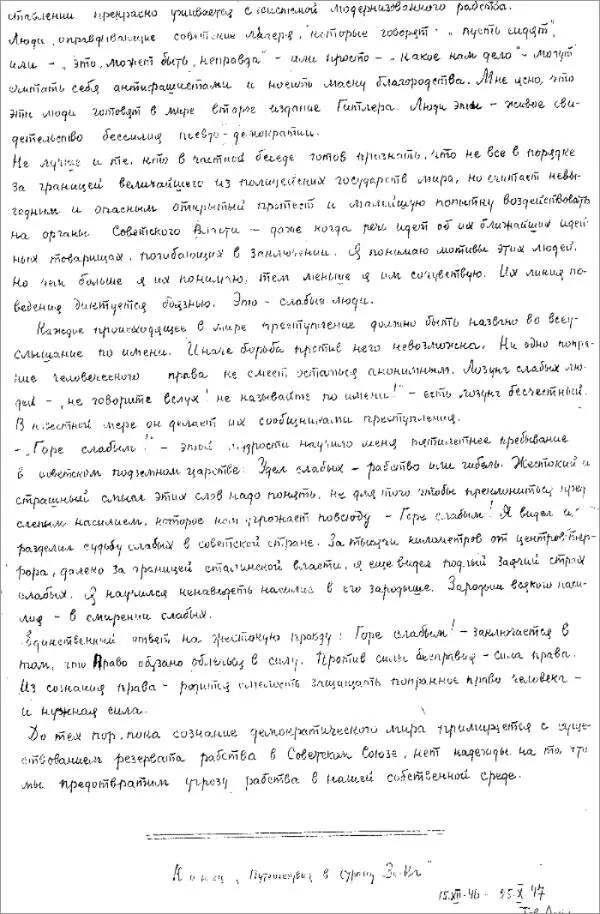 ставлении прекрасно уживается с системой модернизованного рабства.
Люди, оправдывающие советские лагеря, которые говорят: "пусть сидят",
или - "это, может быть, неправда" - или просто - "какое нам дело" - могут
считать себя антифашистами и носить маску благородства. Мне ясно, что
эти люди готовят в мире второе издание Гитлера. Люди эти - живое сви-
детельство бессилия псевдо-демократии.
Не лучше и те, кто в частной беседе готов признать, что не все в порядке
за границей величайшего из полицейских государств мира, но считает невы-
годным и опасным открытый протест и малейшую попытку воздействовать
на органы Советского Власти - даже когда речь идет об их ближайших идей
ных товарищах, погибающих в заключении. Я понимаю мотивы этих людей.
Но чем больше я их понимаю, тем меньше я им сочувствую. Их линия по-
ведения диктуется боязнью. Это - слабые люди.
Каждое происходящее в мире преступление должно быть названо во всеу-
слышание по имени. Иначе борьба против него невозможна. Ни одно попра-
ние человеческого права не смеет остаться анонимным. Лозунг слабых лю-
дей - "не говорите вслух! не называйте по имени!" - есть лозунг бесчестный.
В известной мере он делает их сообщниками преступления.
- "Горе слабым!" - этой мудрости научило меня пятилетнее пребывание
в советском подземном царстве. Удел слабых - рабство или гибель. Жестокий и
страшный смысл этих слов надо понять, не для того чтобы преклониться пред
слепым насилием, которое нам угрожает повсюду - Горе слабым! Я видел и
разделил судьбу слабых в советской стране. За тысячи километров от центров тер-
рора, далеко за границей сталинской власти, я еще видел подлый задний страх
слабых. Я научился ненавидеть насилие в его зародыше. Зародыш всякого наси-
лия - в смирении слабых.
Единственный ответ на жестокую правду: Горе слабым! - заключается в
том, что Право обязано облечься в силу. Против силы бесправия - сила права.
Из сознания права - родится смелость защищать попранное право человека -
и нужная сила.
До тех пор, пока сознание демократического мира примиряется с суще-
ствованием резервата рабства в Советском Союзе, нет надежды на то, что
мы предотвратим угрозу рабства в нашей собственной среде.
Конец "Путешествия в страну Зе-Ка"
15.XII.46 - 25.X.47